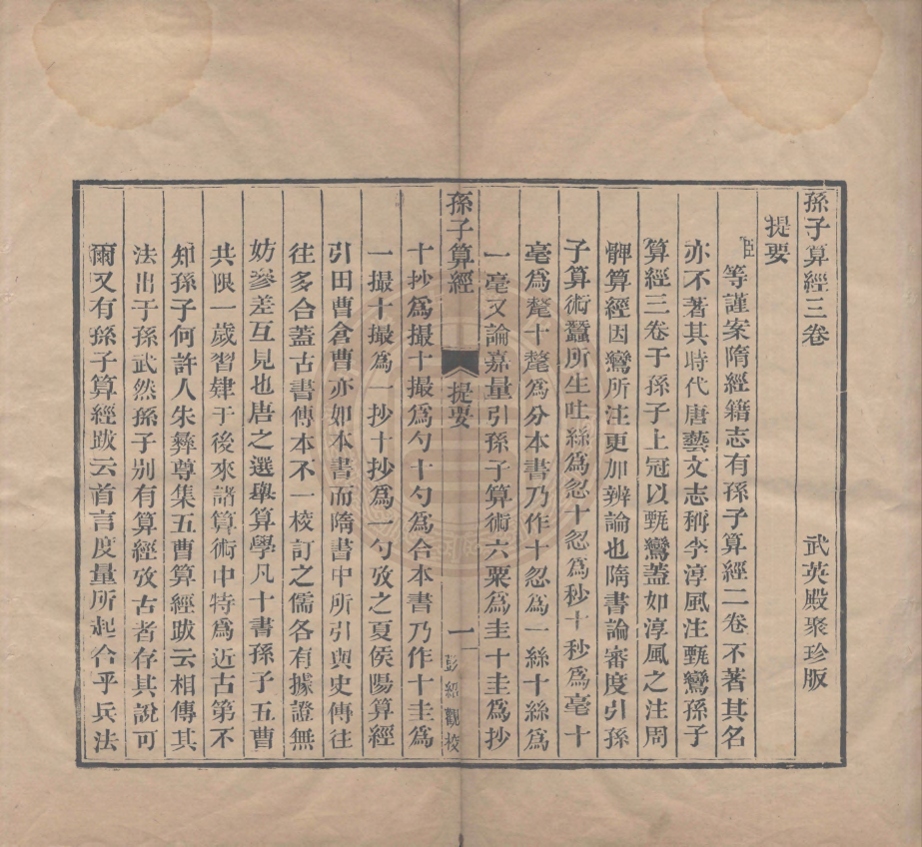 孫子算經三卷 武英殿聚珍版
提要
臣等謹案隋經籍志有孫子算經二卷不著其名
亦不著其時代唐藝文志稱李淳風注甄鸞孫子
算經三卷于孫子上冠以甄鸞蓋如淳風之注周
髀算經因鸞所注更加辨論也隋書論審度引孫
子算術蠶所生吐絲為忽十忽為秒十秒為毫十
毫為氂十氂為分本書乃作十忽為一絲十絲為
一毫又論嘉量引孫子算術六粟為圭十圭為抄
孫子算經 提要 一 彭紹觀校
十抄為撮十撮為勺十勺為合本書乃作十圭為
一撮十撮為一抄十抄為一勺攷之夏侯陽算經
引田曹倉曹亦如本書而隋書中所引與史傳往
往多合蓋古書傳本不一校訂之儒各有據證無
妨參差互見也唐之選舉算學凡十書孫子五曹
共限一歲習肄于後來諸算術中特為近古第不
知孫子何許人朱彝尊集五曹算經跋云相傳其
法出于孫武然孫子別有算經攷古者存其說可
爾又有孫子算經跋云首言度量所起合乎兵法